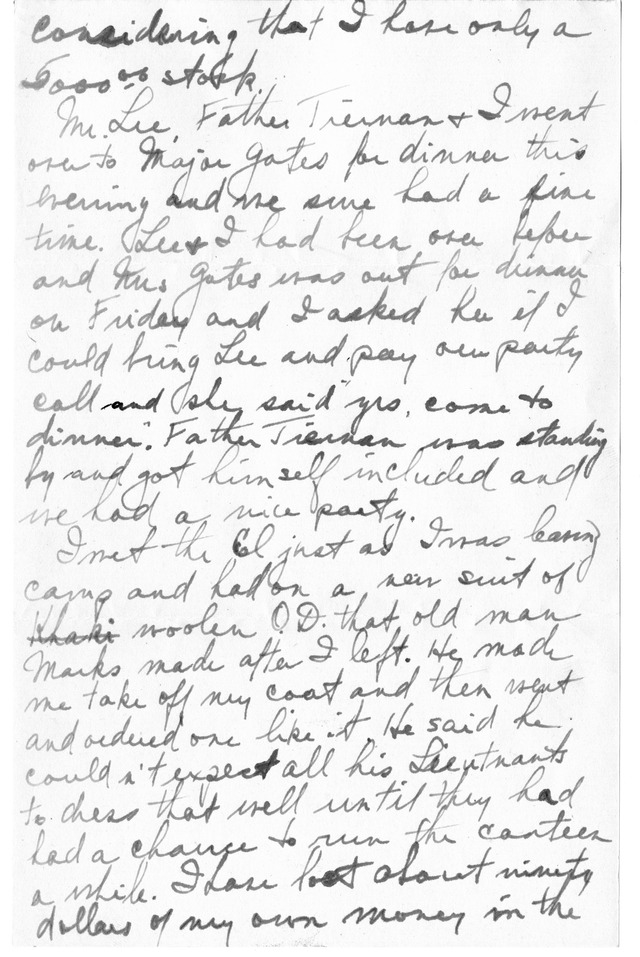 considering that I have only a
5000.00 stock.
Mr. Lee, Father Tiernan & I went
over to Major Gates for dinner this
evening and we sure had a fine
time. Lee & I had been over before
and Mrs Gates was out for dinner
on Friday and I asked her if I
could bring Lee and pay our party
call and she said "yes, come to
dinner". Father Tiernan was standing
by and got himself included and
we had a nice party.
I met the Col just as I was leaving
camp and had on a new suit of
Khaki woolen O.D. that old man
Marks made after I left. He made
me take off my coat and then went
and ordered one like it. He said he
couldn't expect all his Lieutnants
to dress that well until they had
had a chance to run the canteen
a while. I have lost about ninety
dollars of my own money in the